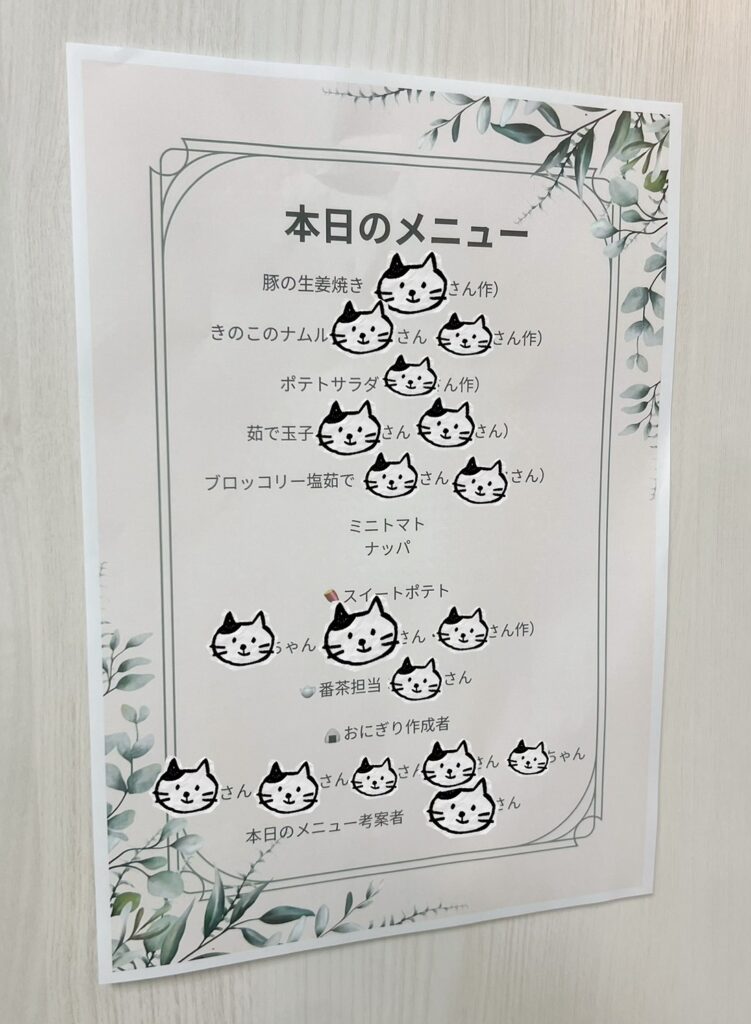 本日のメニュー
豚の生姜焼き さん作)
きのこのナムル さん さん作)
ポテトサラダ ん作)
茹で玉子 さん さん)
ブロッコリー塩茹で さん さん)
ミニトマト
ナッパ
スイートポテト
ちゃん さん・ さん作)
番茶担当 さん
おにぎり作成者
さん さん さん さん ちゃん
本日のメニュー考案者 さん